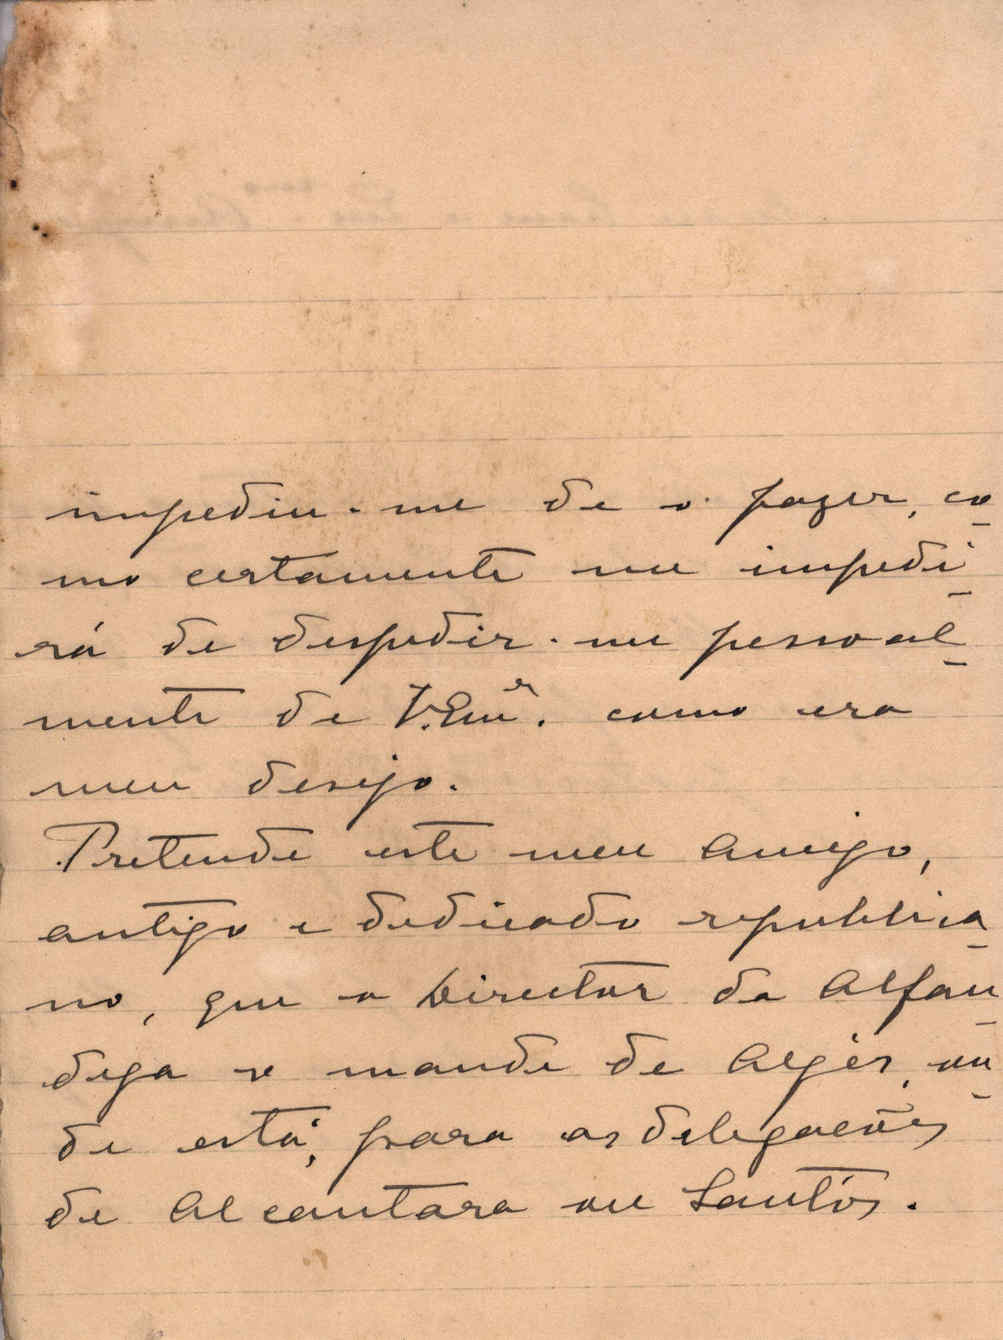 impediu-me de o fazer, co-
mo certamente me impedi-
rá de despedir-me pessoal-
mente de V. Exª. como era
meu desejo.
Pretende este meu amigo,
antigo e dedicado republica-
no, que o Director da Alfan-
dega o mande de Algés, on-
de está, para as delegações
de Alcantara ou Santos.